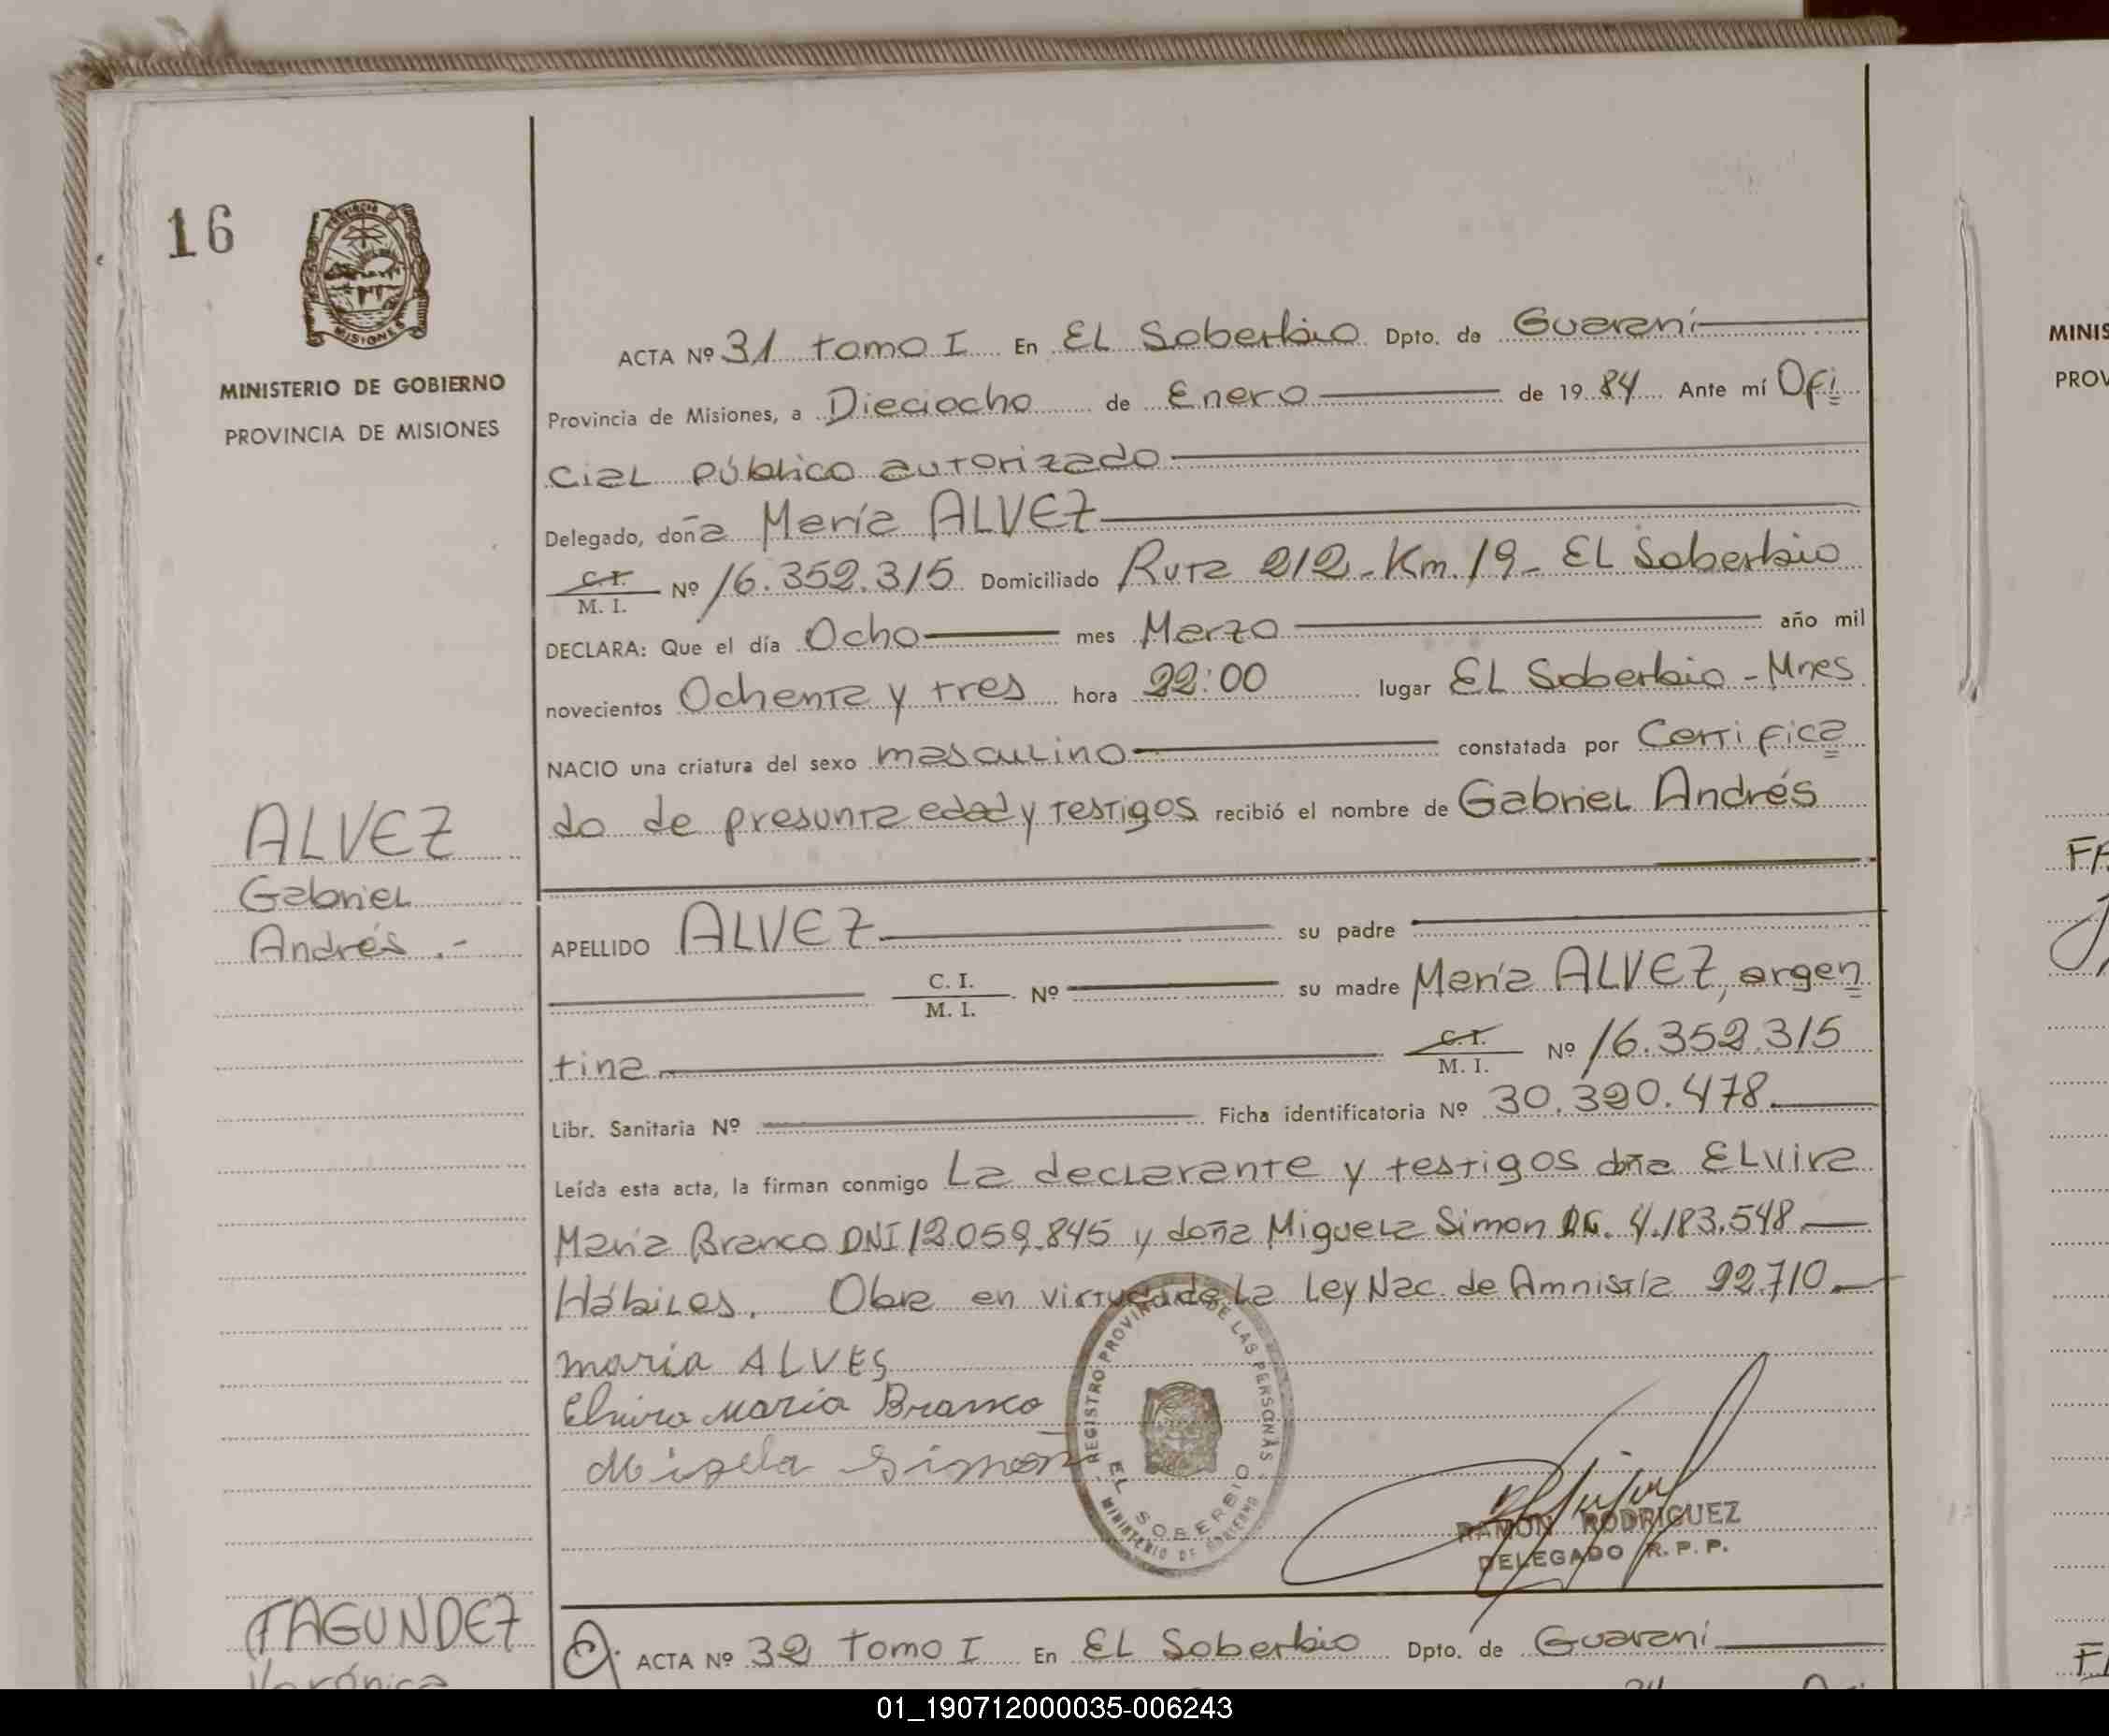 16
MISIONES
MINISTERIO DE GOBIERNO
PROVINCIA DE MISIONES
ACTA Nº 31 tomo I En El Soberbio Dpto. de Guaraní
Provincia de Misiones, a Dieciocho de Enero de 1984 Ante mí Ofi
cial Público autorizado
Delegado, doña María ALVEZ
C. I. / M. I. Nº 16.352.315 Domiciliado Ruta 212 - Km. 19 - El Soberbio
DECLARA: Que el día Ocho mes Marzo año mil
novecientos Ochenta y tres hora 22:00 lugar El Soberbio - Mnes
NACIO una criatura del sexo masculino constatada por Certifica
do de presunta edad y testigos recibió el nombre de Gabriel Andrés
ALVEZ
Gabriel
Andrés .-
APELLIDO ALVEZ su padre
C. I. / M. I. Nº su madre María ALVEZ, argen
tina C. I. / M. I. Nº 16.352.315
Libr. Sanitaria Nº Ficha identificatoria Nº 30.390.478.
Leída esta acta, la firman conmigo La declarante y testigos doña Elvira
María Branco DNI 12.059.845 y doña Miguela Simon 4.183.548
Hábiles. Obra en virtud de la Ley Nac. de Amnistía 22.710.
maria ALVES
Elvira maria Branco
Migela Simon
REGISTRO PROVINCIAL DE LAS PERSONAS
EL SOBERBIO
MINISTERIO DE GOBIERNO
RAMON RODRIGUEZ
DELEGADO R. P. P.
FAGUNDEZ
Verónica
ACTA Nº 32 Tomo I En El Soberbio Dpto. de Guaraní
MINIS
PROV
01_190712000035-006243